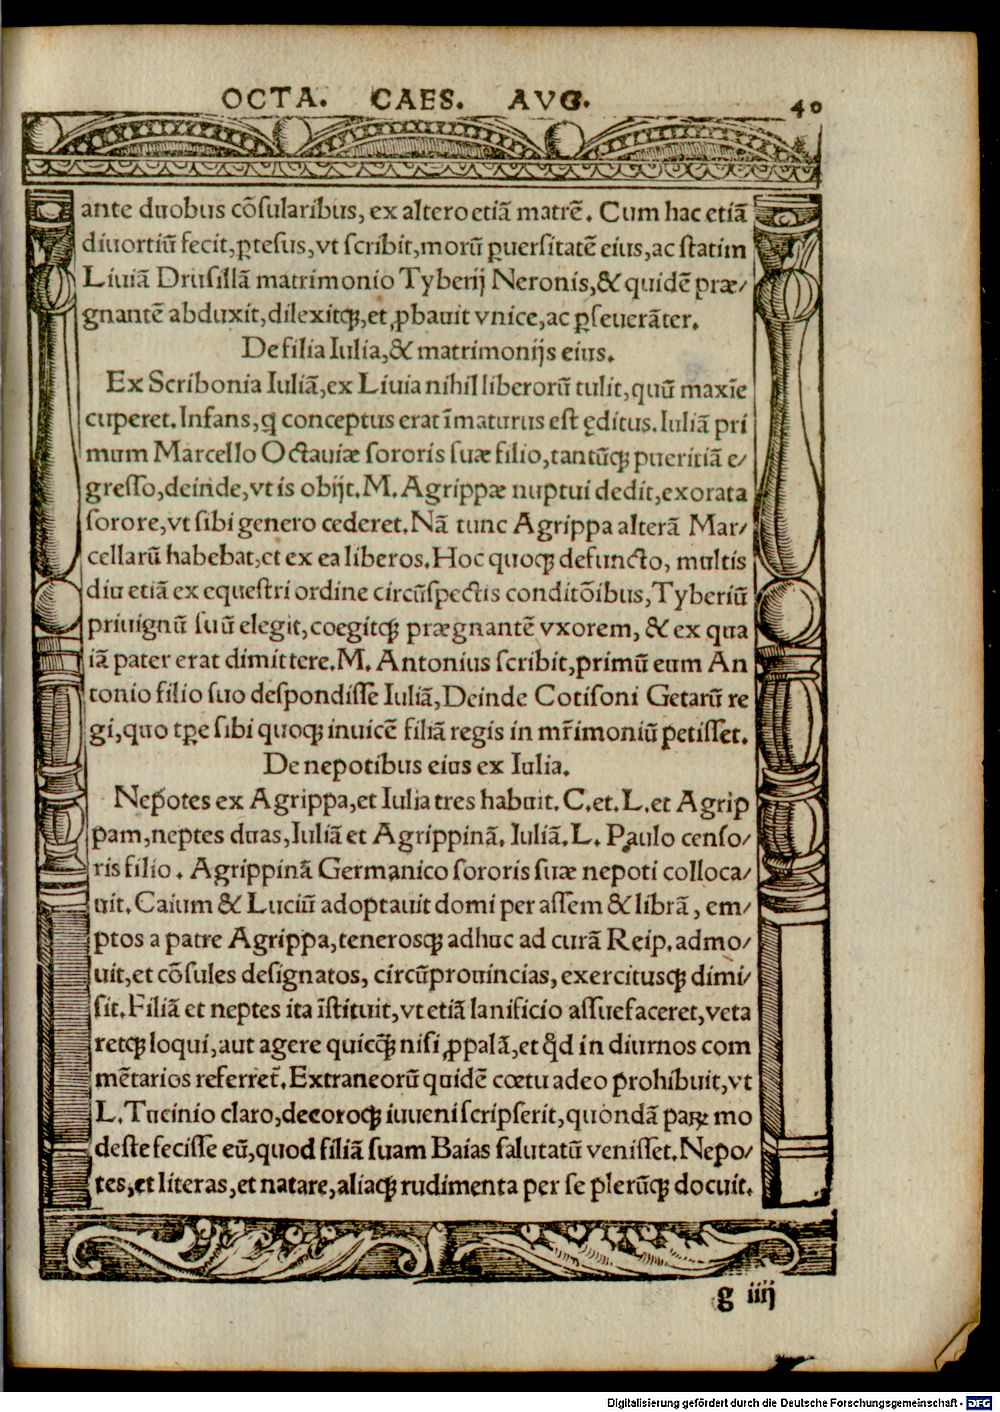 OCTA. CAES. AVG. 40
ante duobus cōſularibus, ex altero etiā matrē. Cum hac etiā
diuortiū fecit, ꝑteſus, vt ſcribit, morū ꝑuerſitatē eius, ac ſtatim
Liuiā Druſillā matrimonio Tyberij Neronis, & quidē præ/
gnantē abduxit, dilexitqꝫ, et ꝓbauit vnice, ac ꝑſeuerāter.
De filia Iulia, & matrimonijs eius.
Ex Scribonia Iuliā, ex Liuia nihil liberorū tulit, quū maxīe
cuperet. Infans, ꝗ conceptus erat īmaturus eſt ęditus. Iuliā pri
mum Marcello Octauiæ ſororis ſuæ filio, tantūqꝫ pueritiā e/
greſſo, deinde, vt is obijt. M. Agrippæ nuptui dedit, exorata
ſorore, vt ſibi genero cederet. Nā tunc Agrippa alterā Mar/
cellarū habebat, et ex ea liberos. Hoc quoqꝫ defuncto, multis
diu etiā ex equeſtri ordine circūſpectis conditōibus, Tyberiū
priuignū ſuū elegit, coegitqꝫ prægnantē vxorem, & ex qua
iā pater erat dimittere. M. Antonius ſcribit, primū eum An
tonio filio ſuo deſpondiſſe Iuliā, Deinde Cotiſoni Getarū re
gi, quo tꝑe ſibi quoqꝫ inuicē filiā regis in mr̄imoniū petiſſet.
De nepotibus eius ex Iulia.
Nepotes ex Agrippa, et Iulia tres habuit. C. et. L. et Agrip
pam, neptes duas, Iuliā et Agrippinā. Iuliā. L. Paulo cenſo/
ris filio. Agrippinā Germanico ſororis ſuæ nepoti colloca/
uit. Caium & Luciū adoptauit domi per aſſem & librā, em/
ptos a patre Agrippa, teneroſqꝫ adhuc ad curā Reip. admo/
uit, et cōſules deſignatos, circūprouincias, exercituſqꝫ dimi/
ſit. Filiā et neptes ita īſtituit, vt etiā lanificio aſſuefaceret, veta
retqꝫ loqui, aut agere quicꝗ̄ niſi ꝓpalā, et ꝗd in diurnos com
mētarios referret. Extraneorū quidē cœtu adeo prohibuit, vt
L. Tucinio claro, decoroqꝫ iuueni ſcripſerit, quondā paꝝ mo
deſte feciſſe eū, quod filiā ſuam Baias ſalutatū veniſſet. Nepo/
tes, et literas, et natare, aliaqꝫ rudimenta per ſe plerūqꝫ docuit.
g iiij
Digitalisierung gefördert durch die Deutsche Forschungsgemeinschaft - DFG